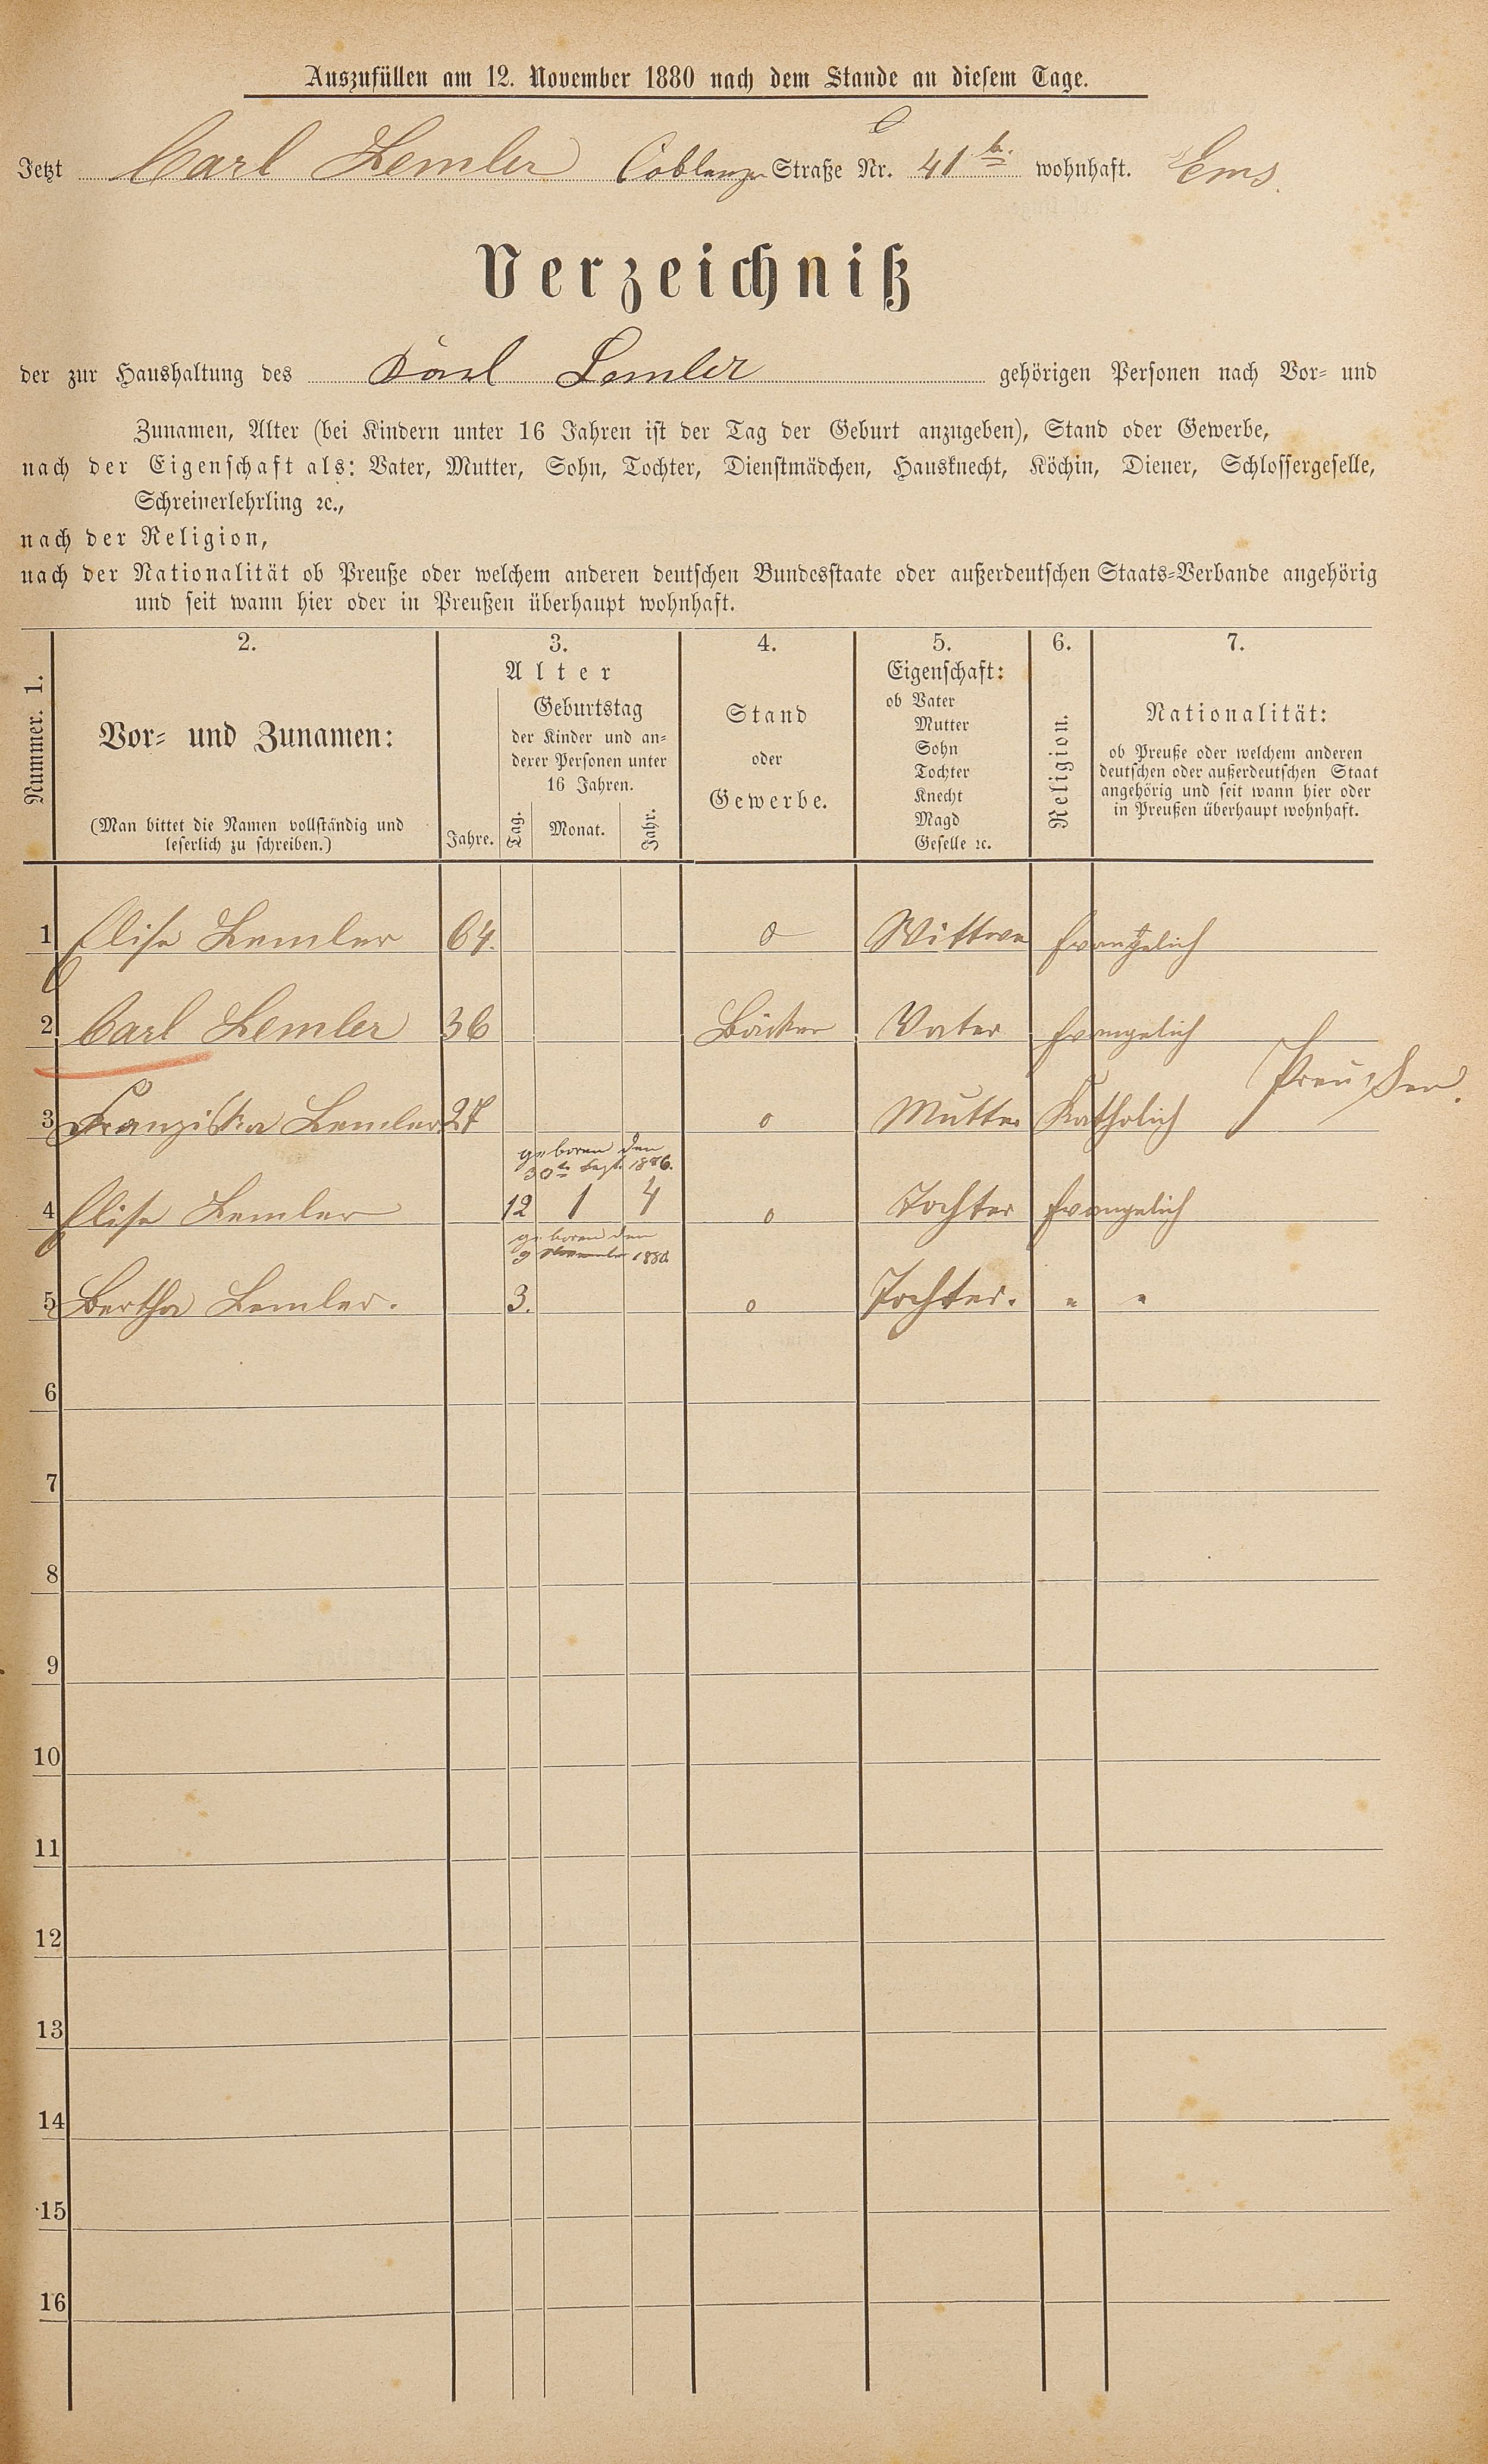 Auszufüllen am 12. November 1880 nach dem Stande an diesem Tage.
Jetzt Carl Lemler Coblenzer Straße Nr. 41 b. wohnhaft. Ems.
Verzeichniß
der zur Haushaltung des Karl Lemler gehörigen Personen nach Vor- und
Zunamen, Alter (bei Kindern unter 16 Jahren ist der Tag der Geburt anzugeben), Stand oder Gewerbe,
nach der Eigenschaft als: Vater, Mutter, Sohn, Tochter, Dienstmädchen, Hausknecht, Köchin, Diener, Schlossergeselle,
Schreinerlehrling ꝛc.,
nach der Religion,
nach der Nationalität ob Preuße oder welchem anderen deutschen Bundesstaate oder außerdeutschen Staats-Verbande angehörig
und seit wann hier oder in Preußen überhaupt wohnhaft.
Nummer. 1.
2.
Vor- und Zunamen:
(Man bittet die Namen vollständig und
leserlich zu schreiben.)
3.
Alter
Jahre.
Geburtstag
der Kinder und an-
derer Personen unter
16 Jahren.
Tag. Monat. Jahr.
4.
Stand
oder
Gewerbe.
5.
Eigenschaft:
ob Vater
Mutter
Sohn
Tochter
Knecht
Magd
Geselle ꝛc.
6.
Religion.
7.
Nationalität:
ob Preuße oder welchem anderen
deutschen oder außerdeutschen Staat
angehörig und seit wann hier oder
in Preußen überhaupt wohnhaft.
1 Elise Lemler 64. o Wittwe Evangelich
2 Carl Lemler 36 Bäcker Vater Evangelich
Preußen.
3 Franziska Lemler 27 o Mutter Katholich
geboren den
30t Sept. 1876.
4 Elise Lemler 12 1 4 o Tochter Evangelich
geboren den
9 November 1880
5 Bertha Lemler. 3. o Tochter. " "
6
7
8
9
10
11
12
13
14
15
16